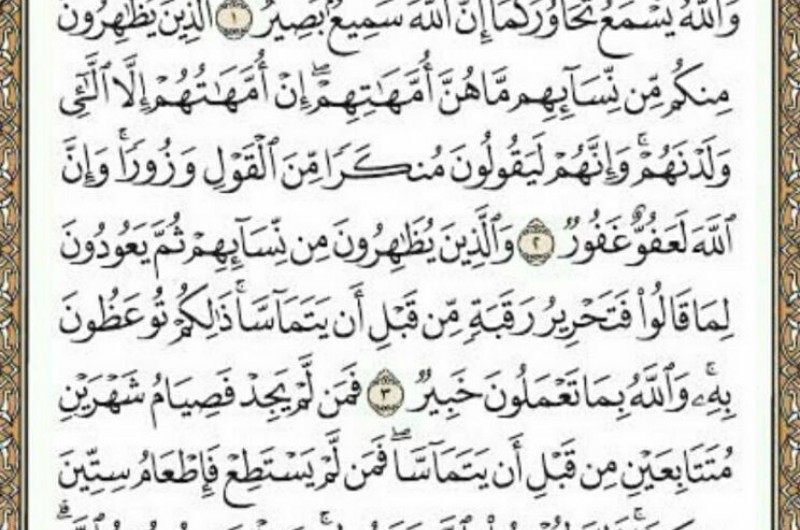 وَٱللَّهُ يَسْمَعُ تَحَاوُرَكُمَآ إِنَّ ٱللَّهَ سَمِيعٌۢ بَصِيرٌ ١ ٱلَّذِينَ يُظَٰهِرُونَ
مِنكُم مِّن نِّسَآئِهِم مَّا هُنَّ أُمَّهَٰتِهِمْۖ إِنْ أُمَّهَٰتُهُمْ إِلَّا ٱلَّٰٓـِٔى
وَلَدْنَهُمْۚ وَإِنَّهُمْ لَيَقُولُونَ مُنكَرًا مِّنَ ٱلْقَوْلِ وَزُورًاۚ وَإِنَّ
ٱللَّهَ لَعَفُوٌّ غَفُورٌ ٢ وَٱلَّذِينَ يُظَٰهِرُونَ مِن نِّسَآئِهِمْ ثُمَّ يَعُودُونَ
لِمَا قَالُوا۟ فَتَحْرِيرُ رَقَبَةٍ مِّن قَبْلِ أَن يَتَمَآسَّاۚ ذَٰلِكُمْ تُوعَظُونَ
بِهِۦۚ وَٱللَّهُ بِمَا تَعْمَلُونَ خَبِيرٌ ٣ فَمَن لَّمْ يَجِدْ فَصِيَامُ شَهْرَيْنِ
مُتَتَابِعَيْنِ مِن قَبْلِ أَن يَتَمَآسَّاۖ فَمَن لَّمْ يَسْتَطِعْ فَإِطْعَامُ سِتِّينَ